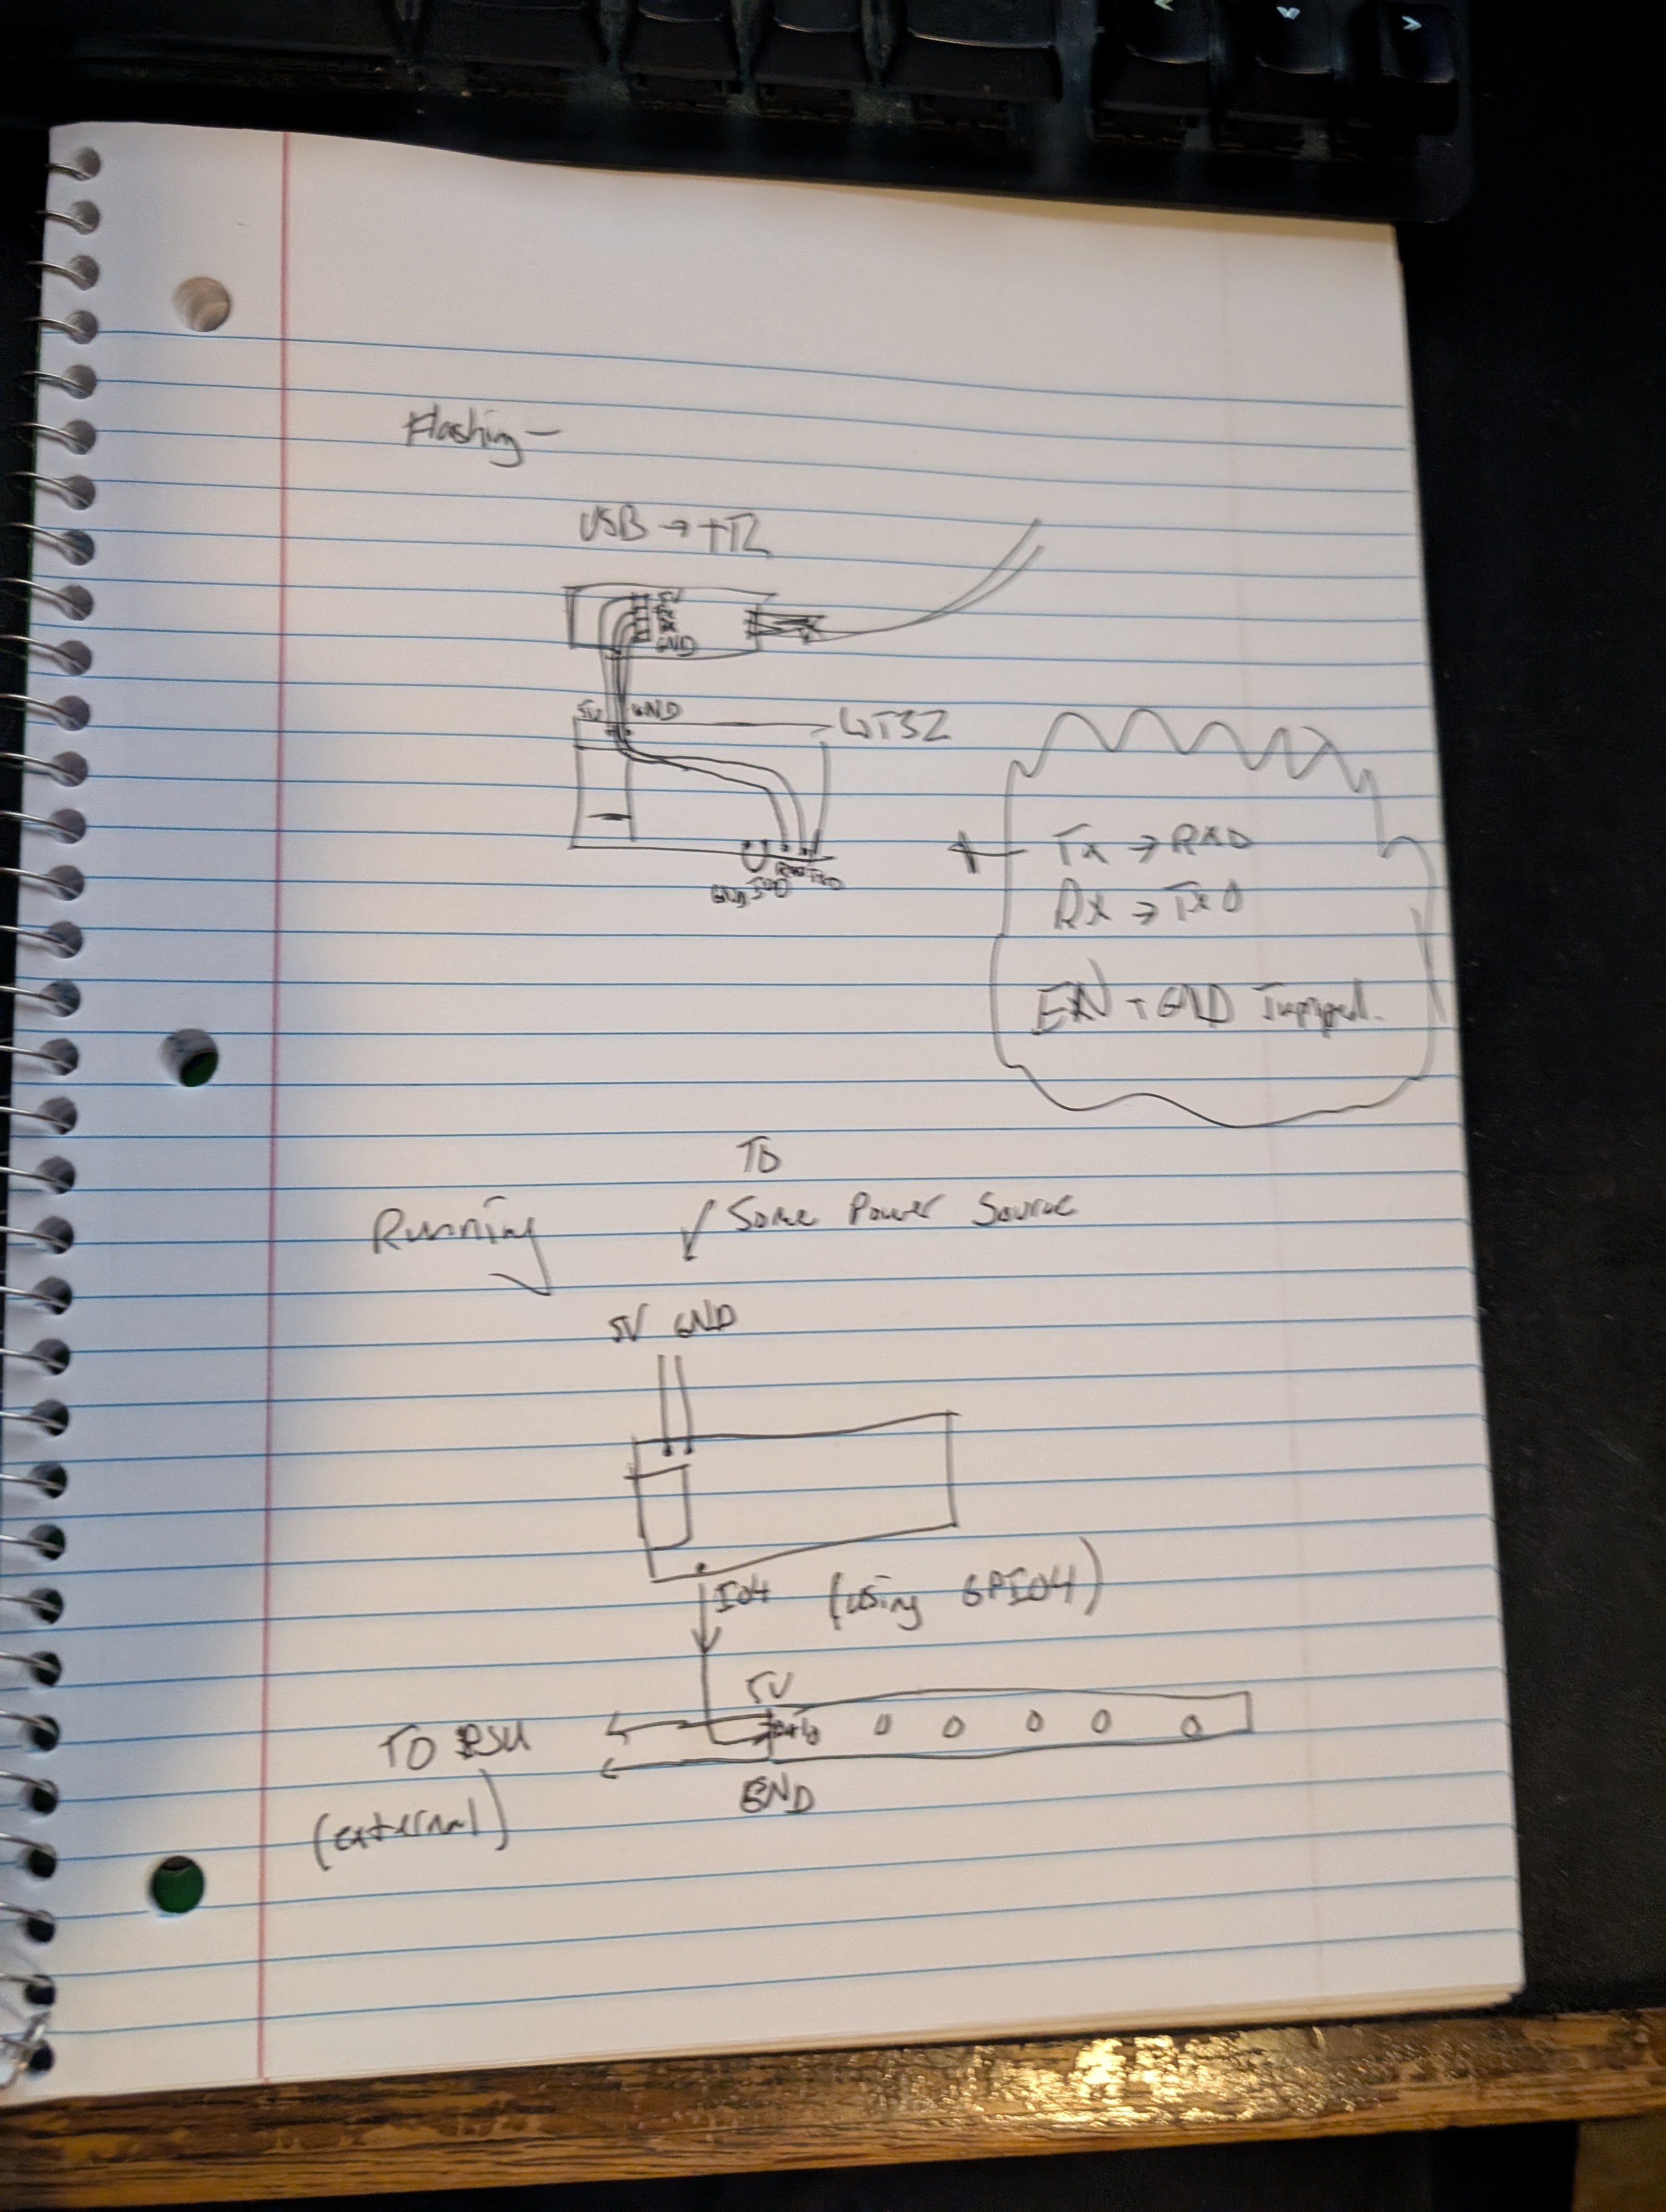 Flashing -
USB → TTL
5V
Tx
Rx
GND
5V GND
WT32
GND IO0 RXD TXD
Tx → RXD
Rx → TXD
EN + GND Jumped.
Running
To
Some Power Source
5V GND
IO4 (using GPIO4)
5V
Data
GND
TO PSU
(external)